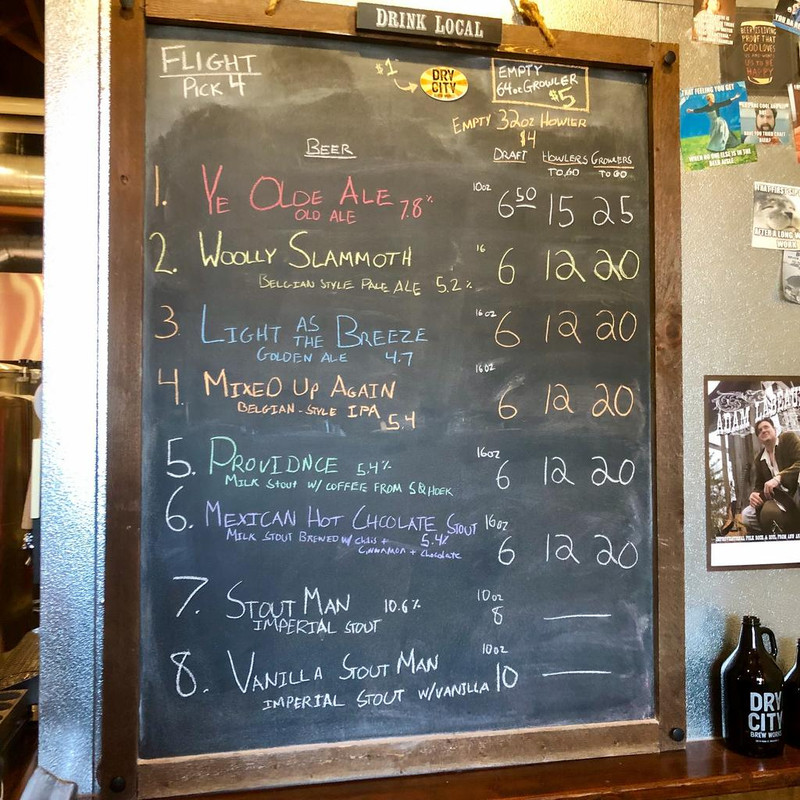 DRINK LOCAL
FLIGHT
PICK 4
$1
DRY
CITY
EMPTY
64oz GROWLER
$5
EMPTY 32oz HOWLER
$4
BEER
DRAFT HOWLERS GROWLERS
TO GO TO GO
1. YE OLDE ALE 7.8% 10oz 6.50 15 25
OLD ALE
2. WOOLLY SLAMMOTH 16 6 12 20
BELGIAN STYLE PALE ALE 5.2%
3. LIGHT AS THE BREEZE 16oz 6 12 20
GOLDEN ALE 4.7
4. MIXED UP AGAIN 16oz 6 12 20
BELGIAN-STYLE IPA 5.4
5. PROVIDNCE 5.4% 16oz 6 12 20
MILK STOUT W/ COFFEE FROM
6. MEXICAN HOT CHCOLATE STOUT 16oz 6 12 20
MILK STOUT BREWED W/ 5.4%
CINNAMON + Chocolate
7. STOUT MAN 10.6% 10oz 8 —
IMPERIAL STOUT
8. VANILLA STOUT MAN 10oz 10 —
IMPERIAL STOUT W/VANILLA
BEER IS LIVING
PROOF THAT
GOD LOVES
US AND WANTS
US TO BE
HAPPY
THAT FEELING YOU GET
WHEN NO ONE ELSE IS IN THE
BEER AISLE
AFTER A LONG
WORK
ADAM
DRY
CITY
BREW WORKS